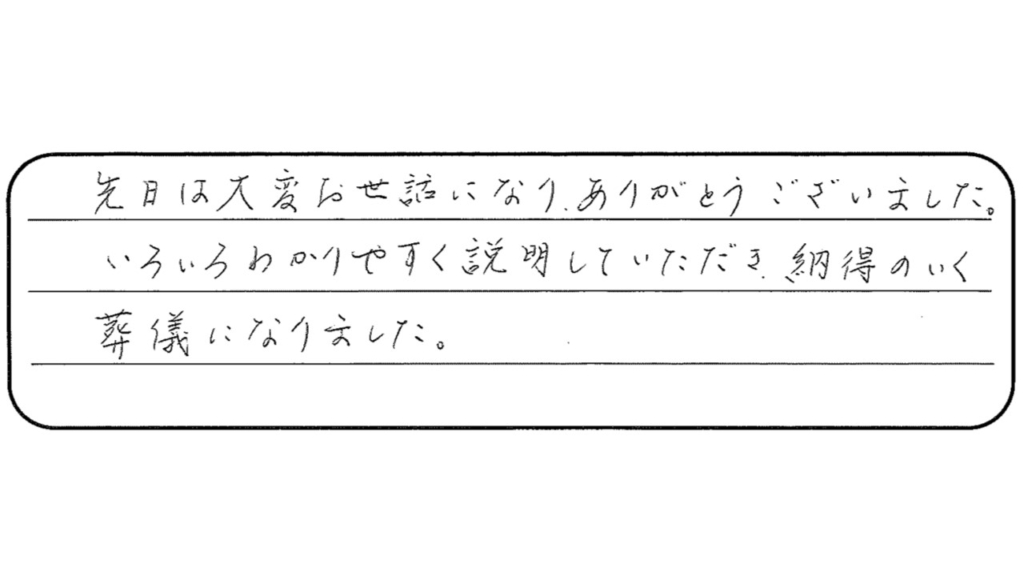 先日は大変お世話になり、ありがとうございました。
いろいろわかりやすく説明していただき、納得のいく
葬儀になりました。